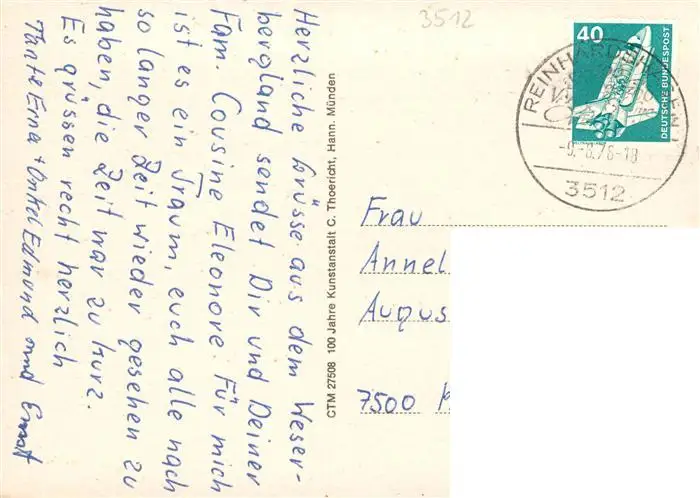 Herzliche Grüsse aus dem Weser-
bergland sendet Dir und Deiner
Fam. Cousine Eleonore. Für mich
ist es ein Traum, euch alle nach
so langer Zeit wieder gesehen zu
haben, die Zeit war zu kurz.
Es grüssen recht herzlich
Tante Erna + Onkel Edmund und Ernst
CTM 27508 100 Jahre Kunstanstalt C. Thoericht, Hann. Münden
3512
40
DEUTSCHE BUNDESPOST
REINHARDSHAGEN
-9.-8.76-18
3512
Frau
Annel
Augus
7500